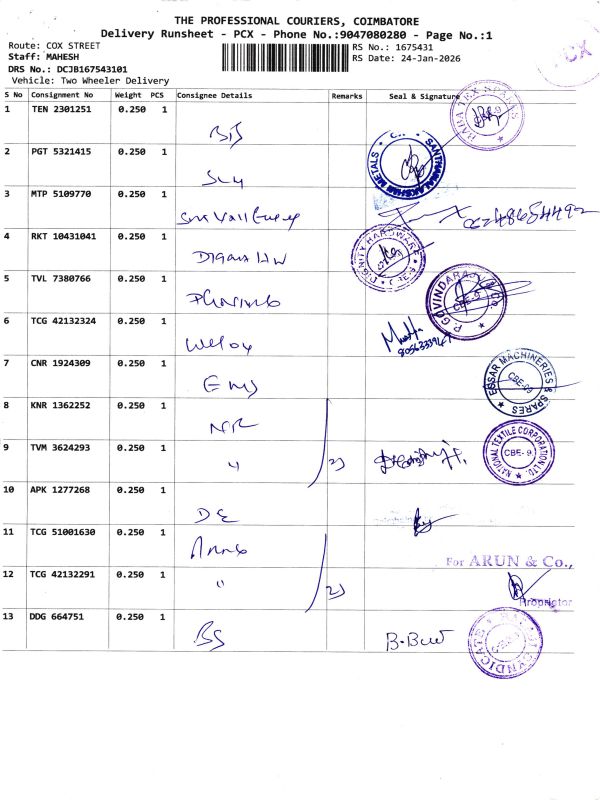 THE PROFESSIONAL COURIERS, COIMBATORE
Delivery Runsheet - PCX - Phone No.:9047080280 - Page No.:1
Route: COX STREET
RS No.: 1675431
Staff: MAHESH
RS Date: 24-Jan-2026
DRS No.: DCJB167543101
Vehicle: Two Wheeler Delivery
PCX
S No Consignment No Weight PCS Consignee Details Remarks Seal & Signature
1 TEN 2301251 0.250 1
2 PGT 5321415 0.250 1
SANTHANALAKSHMI METALS
3 MTP 5109770 0.250 1
4 RKT 10431041 0.250 1
DIGNITY HARDWARE
5 TVL 7380766 0.250 1
P. GOVINDARAJ & Co. CBE-9
6 TCG 42132324 0.250 1
7 CNR 1924309 0.250 1
EMS
ESSAR MACHINERIES & SPARES CBE-09
8 KNR 1362252 0.250 1
NR
9 TVM 3624293 0.250 1
" 2)
NATIONAL TEXTILE CORPORATION LTD. CBE-9.
10 APK 1277268 0.250 1
DE
11 TCG 51001630 0.250 1
For ARUN & Co.,
12 TCG 42132291 0.250 1
" 2)
Proprietor
13 DDG 664751 0.250 1
BS
SYNDICATE